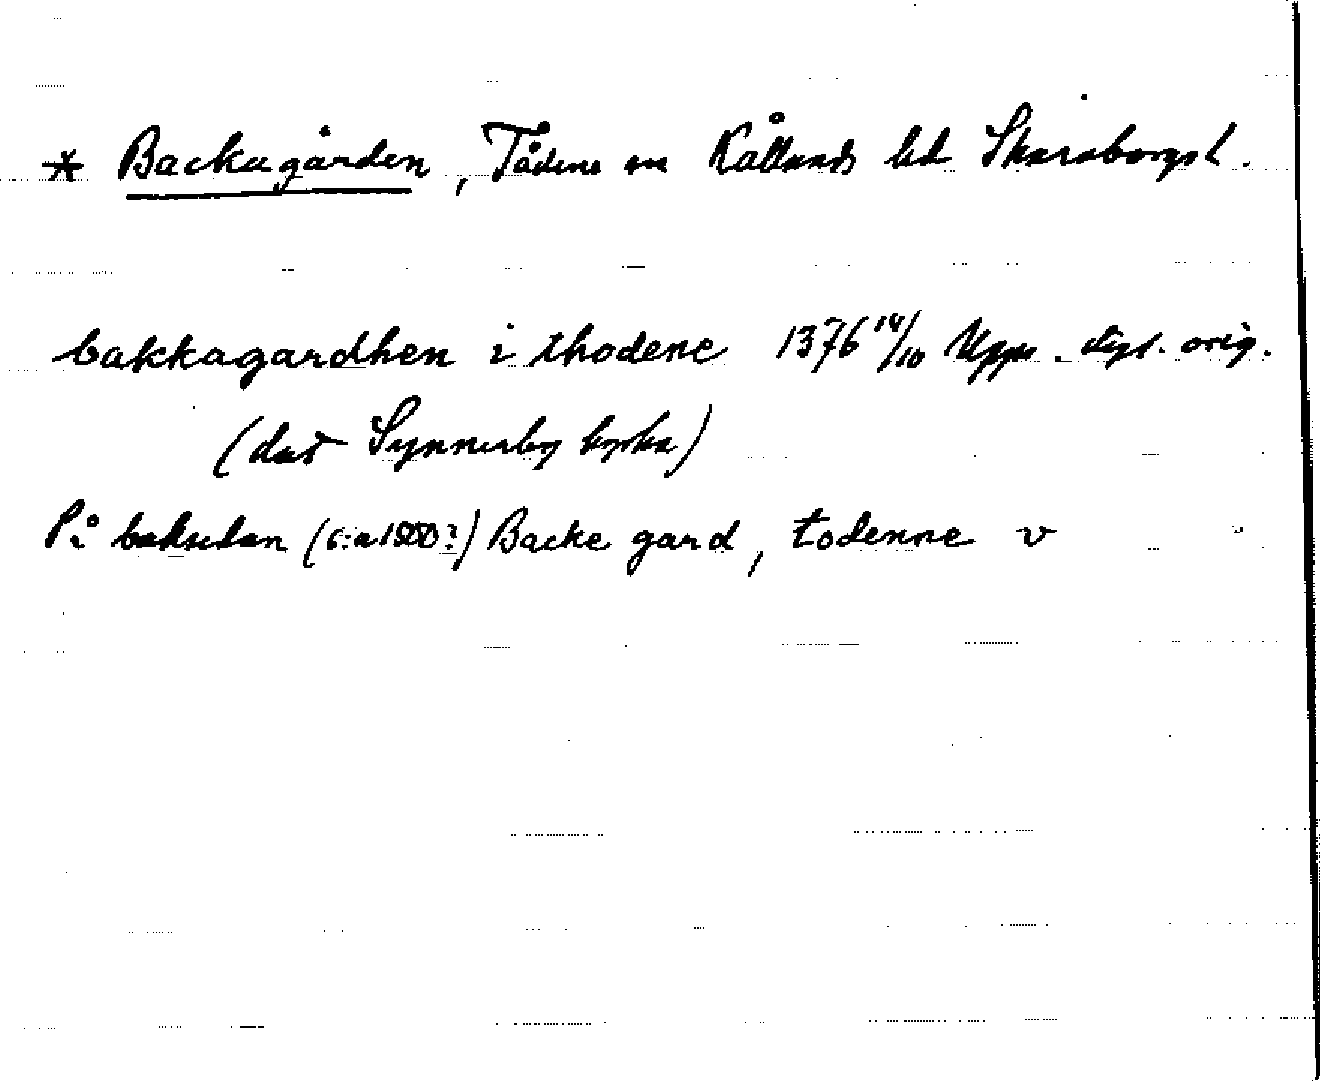 * Backagården, Tådene sn Kållands hd Skaraborgs l.
bakkagardhen i thodene 1376 14/10 Upps. dipl. orig.
(dat Synnerby kyrka)
På baksidan (c:a 1500?) Backe gard, todenne v